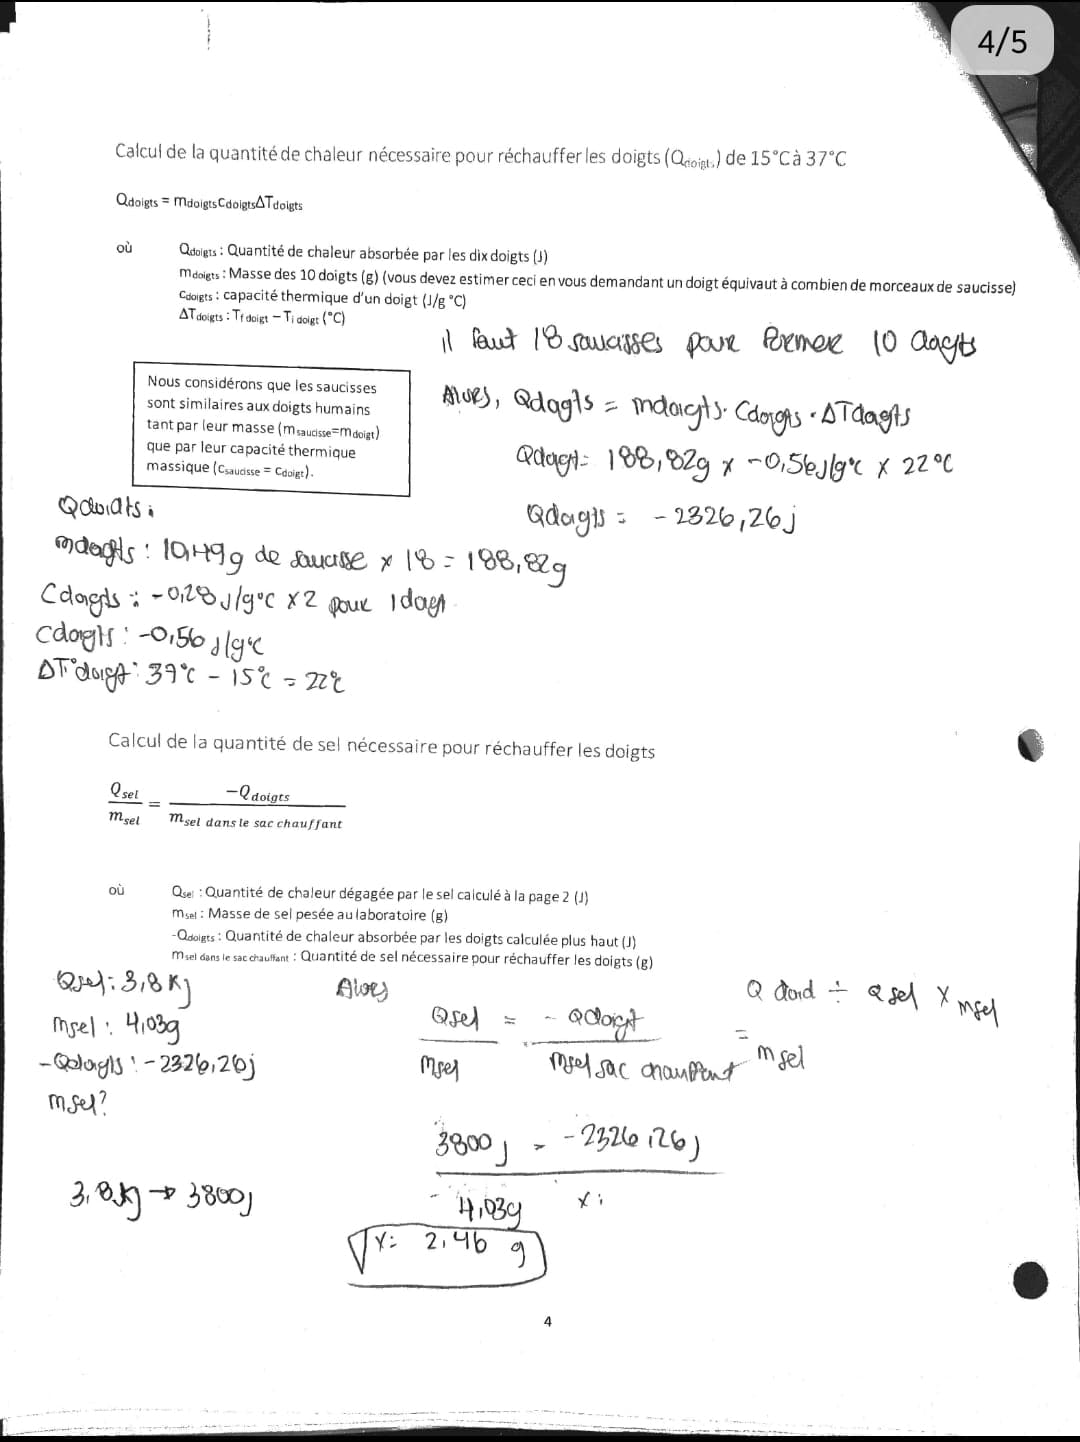 4/5
Calcul de la quantité de chaleur nécessaire pour réchauffer les doigts (Qdoigts) de 15°C à 37°C
Qdoigts = mdoigtsCdoigtsΔTdoigts
où
Qdoigts : Quantité de chaleur absorbée par les dix doigts (J)
mdoigts : Masse des 10 doigts (g) (vous devez estimer ceci en vous demandant un doigt équivaut à combien de morceaux de saucisse)
Cdoigts : capacité thermique d'un doigt (J/g °C)
ΔTdoigts : Tf doigt – Ti doigt (°C)
il faut 18 saucisses pour former 10 doigts
Nous considérons que les saucisses
sont similaires aux doigts humains
tant par leur masse (msaucisse=mdoigt)
que par leur capacité thermique
massique (Csaucisse = Cdoigt).
Alors, Qdoigts = mdoigts · Cdoigts · ΔTdoigts
Qdoigt = 188,82g x -0,56J/g°c x 22°C
Qdoigts = - 2326,26j
Qdoigts :
mdoigts : 10,49g de saucisse x 18 = 188,82g
Cdoigts : -0,28J/g°c x2 pour 1 doigt
Cdoigts : -0,56 J/g°c
ΔT°doigt : 37°c - 15°c = 22°c
Calcul de la quantité de sel nécessaire pour réchauffer les doigts
Qsel / msel = -Qdoigts / msel dans le sac chauffant
où
Qsel : Quantité de chaleur dégagée par le sel calculé à la page 2 (J)
msel : Masse de sel pesée au laboratoire (g)
-Qdoigts : Quantité de chaleur absorbée par les doigts calculée plus haut (J)
msel dans le sac chauffant : Quantité de sel nécessaire pour réchauffer les doigts (g)
Qsel : 3,8 Kj
msel : 4,03g
-Qdoigts : -2326,26j
msel?
3,8Kj → 3800j
Alors
Qsel = - Qdoigt
msel msel sac chauffant
Q doid ÷ Qsel x msel
= msel
3800j = -2326,26j
4,03g x :
x: 2,46 g
4